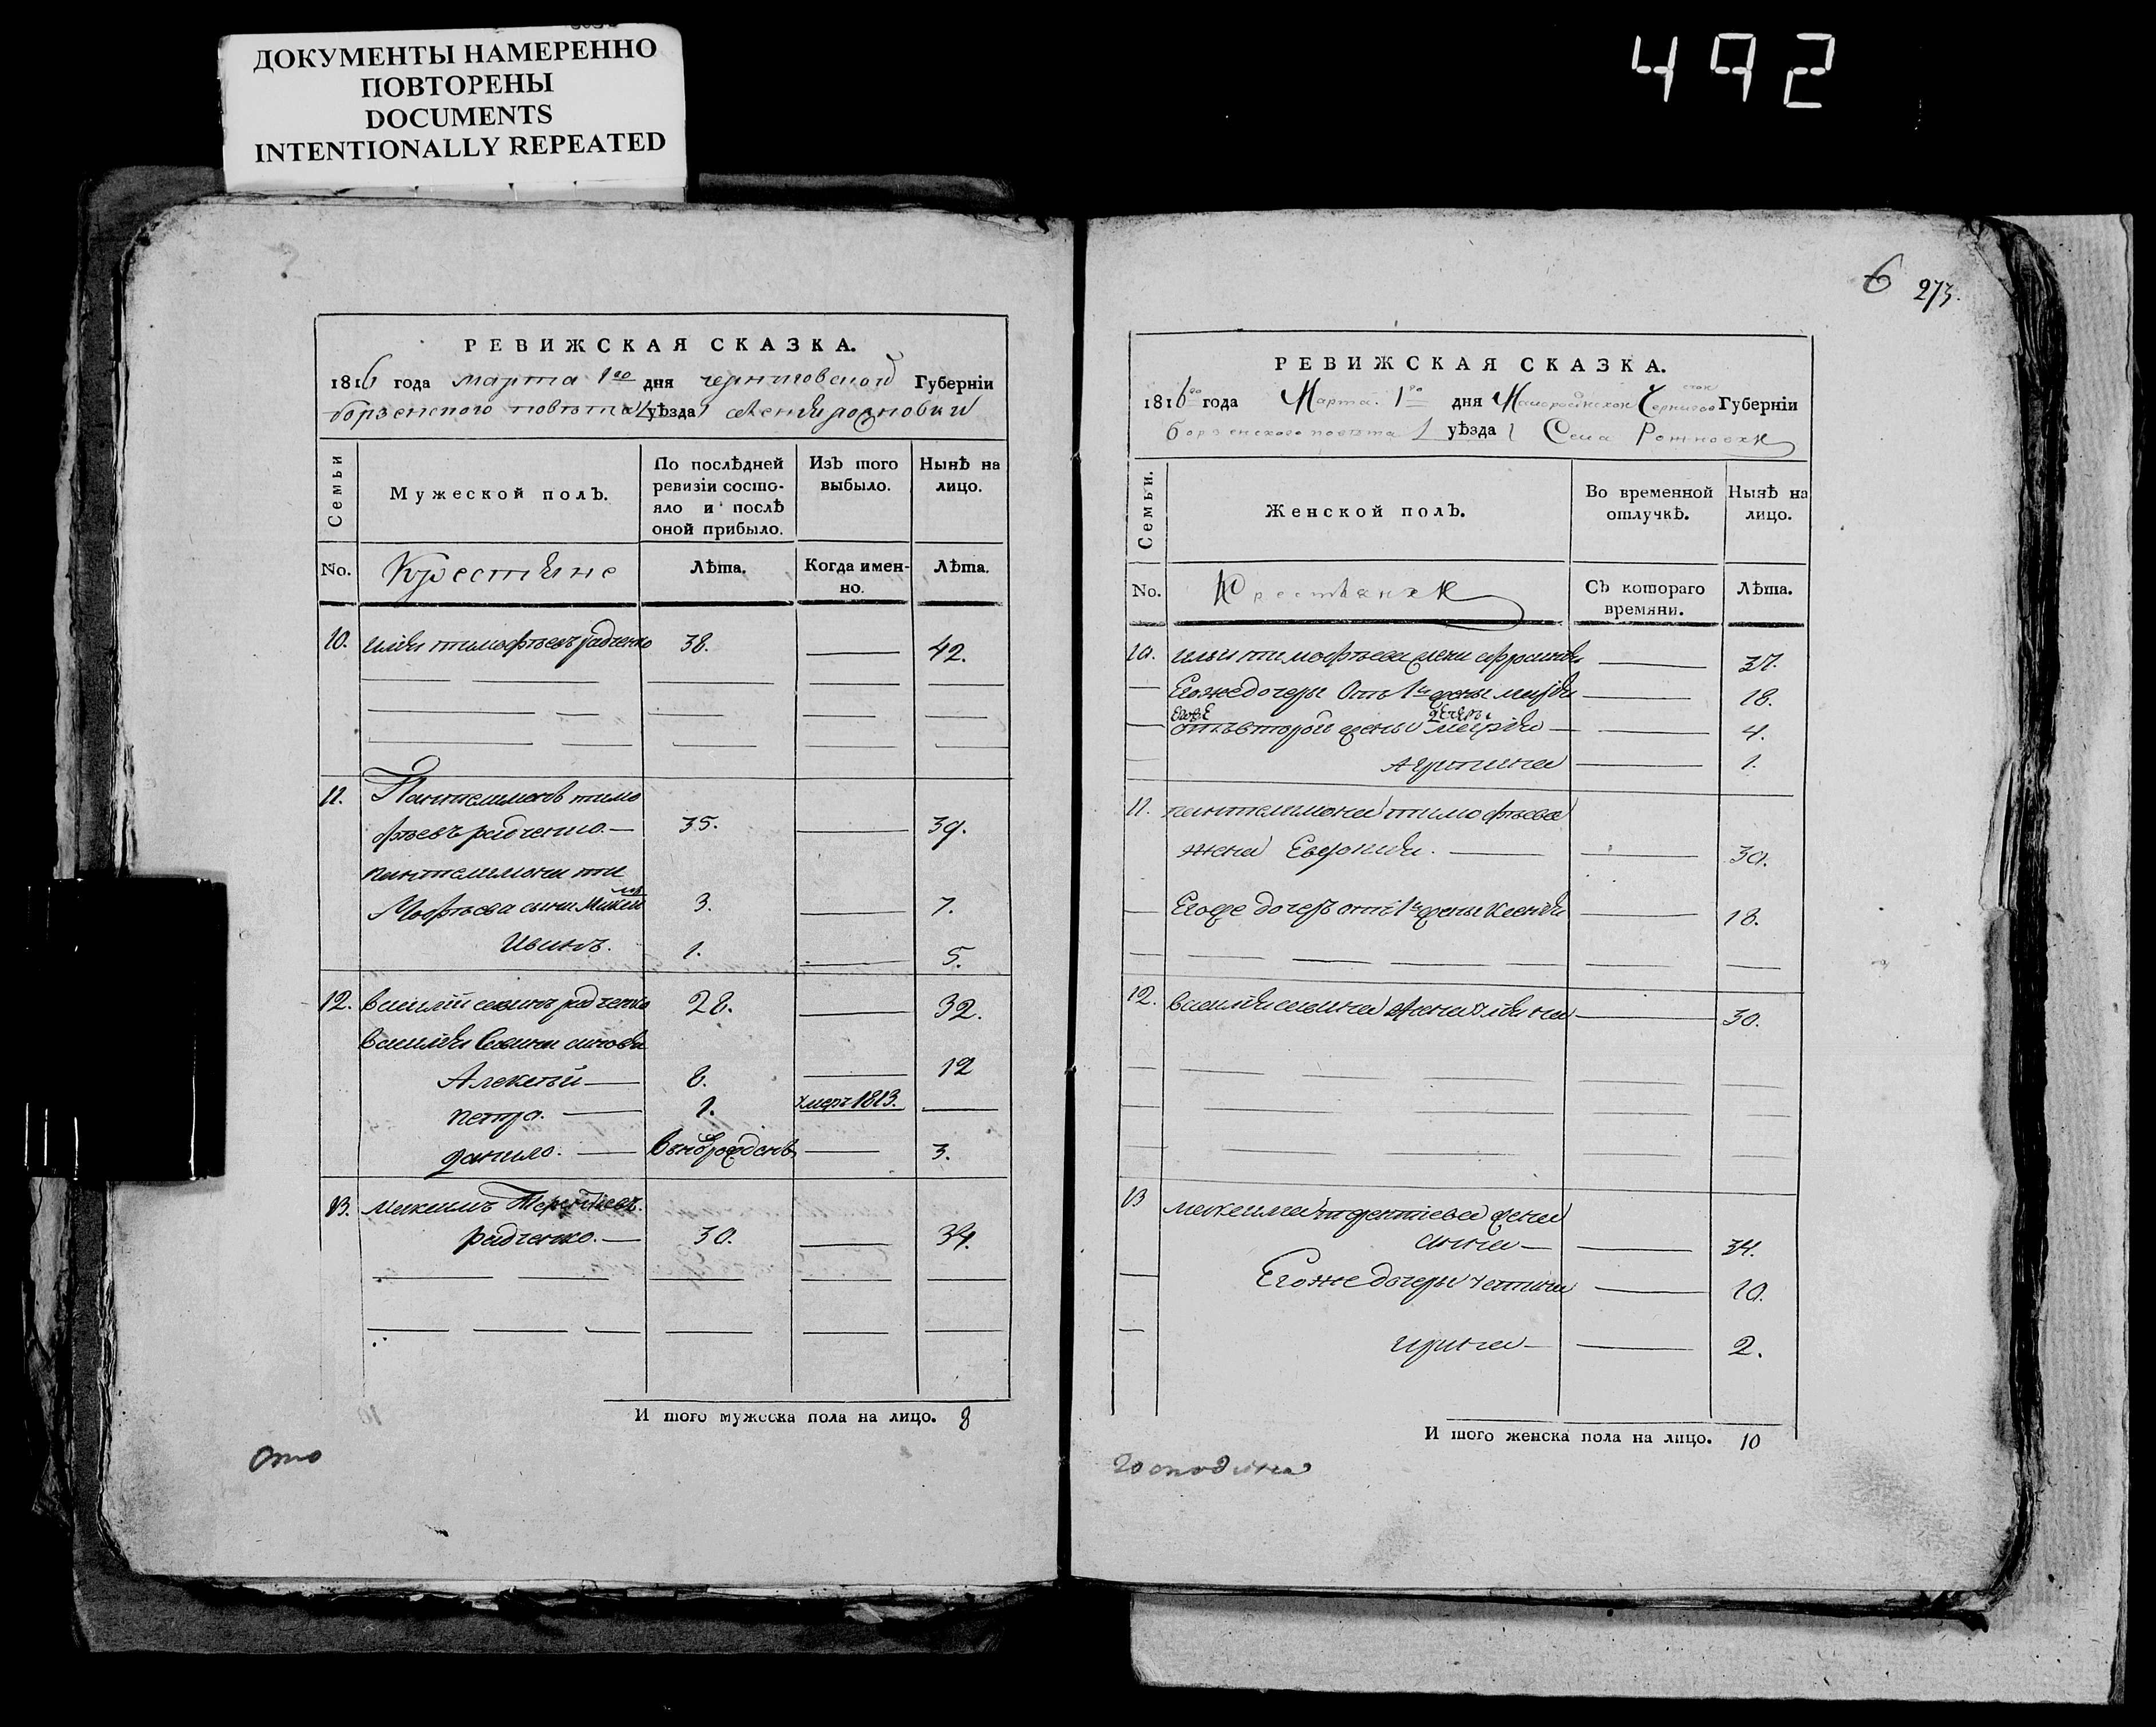 ДОКУМЕНТЫ НАМЕРЕННО
ПОВТОРЕНЫ
DOCUMENTS
INTENTIONALLY REPEATED
492
РЕВИЖСКАЯ СКАЗКА.
1816 года марта 1го дня черниговской Губерніи
борзенского повѣта уѣзда
Семьи
Мужеской полЪ.
По послѣдней ревизіи состояло и послѣ оной прибыло.
ИзЪ того выбыло.
НынѢ на лицо.
No.
Крестяне
ЛѢта.
Когда именно.
ЛѢта.
10. илия тимофѣевъ радченко 38. 42.
11. Пантелимонъ тимо
фѣевъ радченко. 35. 39.
пантелимона ти
мофѣева сыни 3. 7.
Иванъ. 1. 5.
12. василий савинъ радченко 28. 32.
василия савина синовя
Алексѣй 8. 12
петро. 1. умеръ 1813.
данило. вновьрожденъ 3.
13. максимъ Терентіевъ.
радченко. 30. 34.
И того мужеска пола на лицо. 8
6 273.
РЕВИЖСКАЯ СКАЗКА.
1816го года Марта 1го дня Малоросійской Черниговской Губерніи
борзенского повѣта уѣзда Села Рожновки
Семьи.
Женской полЪ.
Во временной отлучкѢ.
НынѢ на лицо.
No.
Крестянки
СЪ котораго времяни.
ЛѢта.
10. илии тимофѣева жена 37.
Егожедочеры отъ 1й жены марія 18.
отъвторой жены марія 4.
Агрипина 1.
11. пантелимона тимофѣева
жена 30.
Егоже дочеръ отъ 1й жены ксенія 18.
12. василия савина жена уляна 30.
13 максима терентіева жена
анна 34.
Егоже дочеры 10.
ирина 2.
И того женска пола на лицо. 10
господина